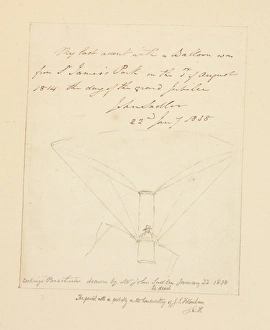 My last ascent with a Balloon was
from St James's Park on the 1st of August
1814 the day of the grand Jubilee
John Sadler
22d Jany 1838
Cocking's Parachute drawn by Mr John Sadler January 22 1838
is dead